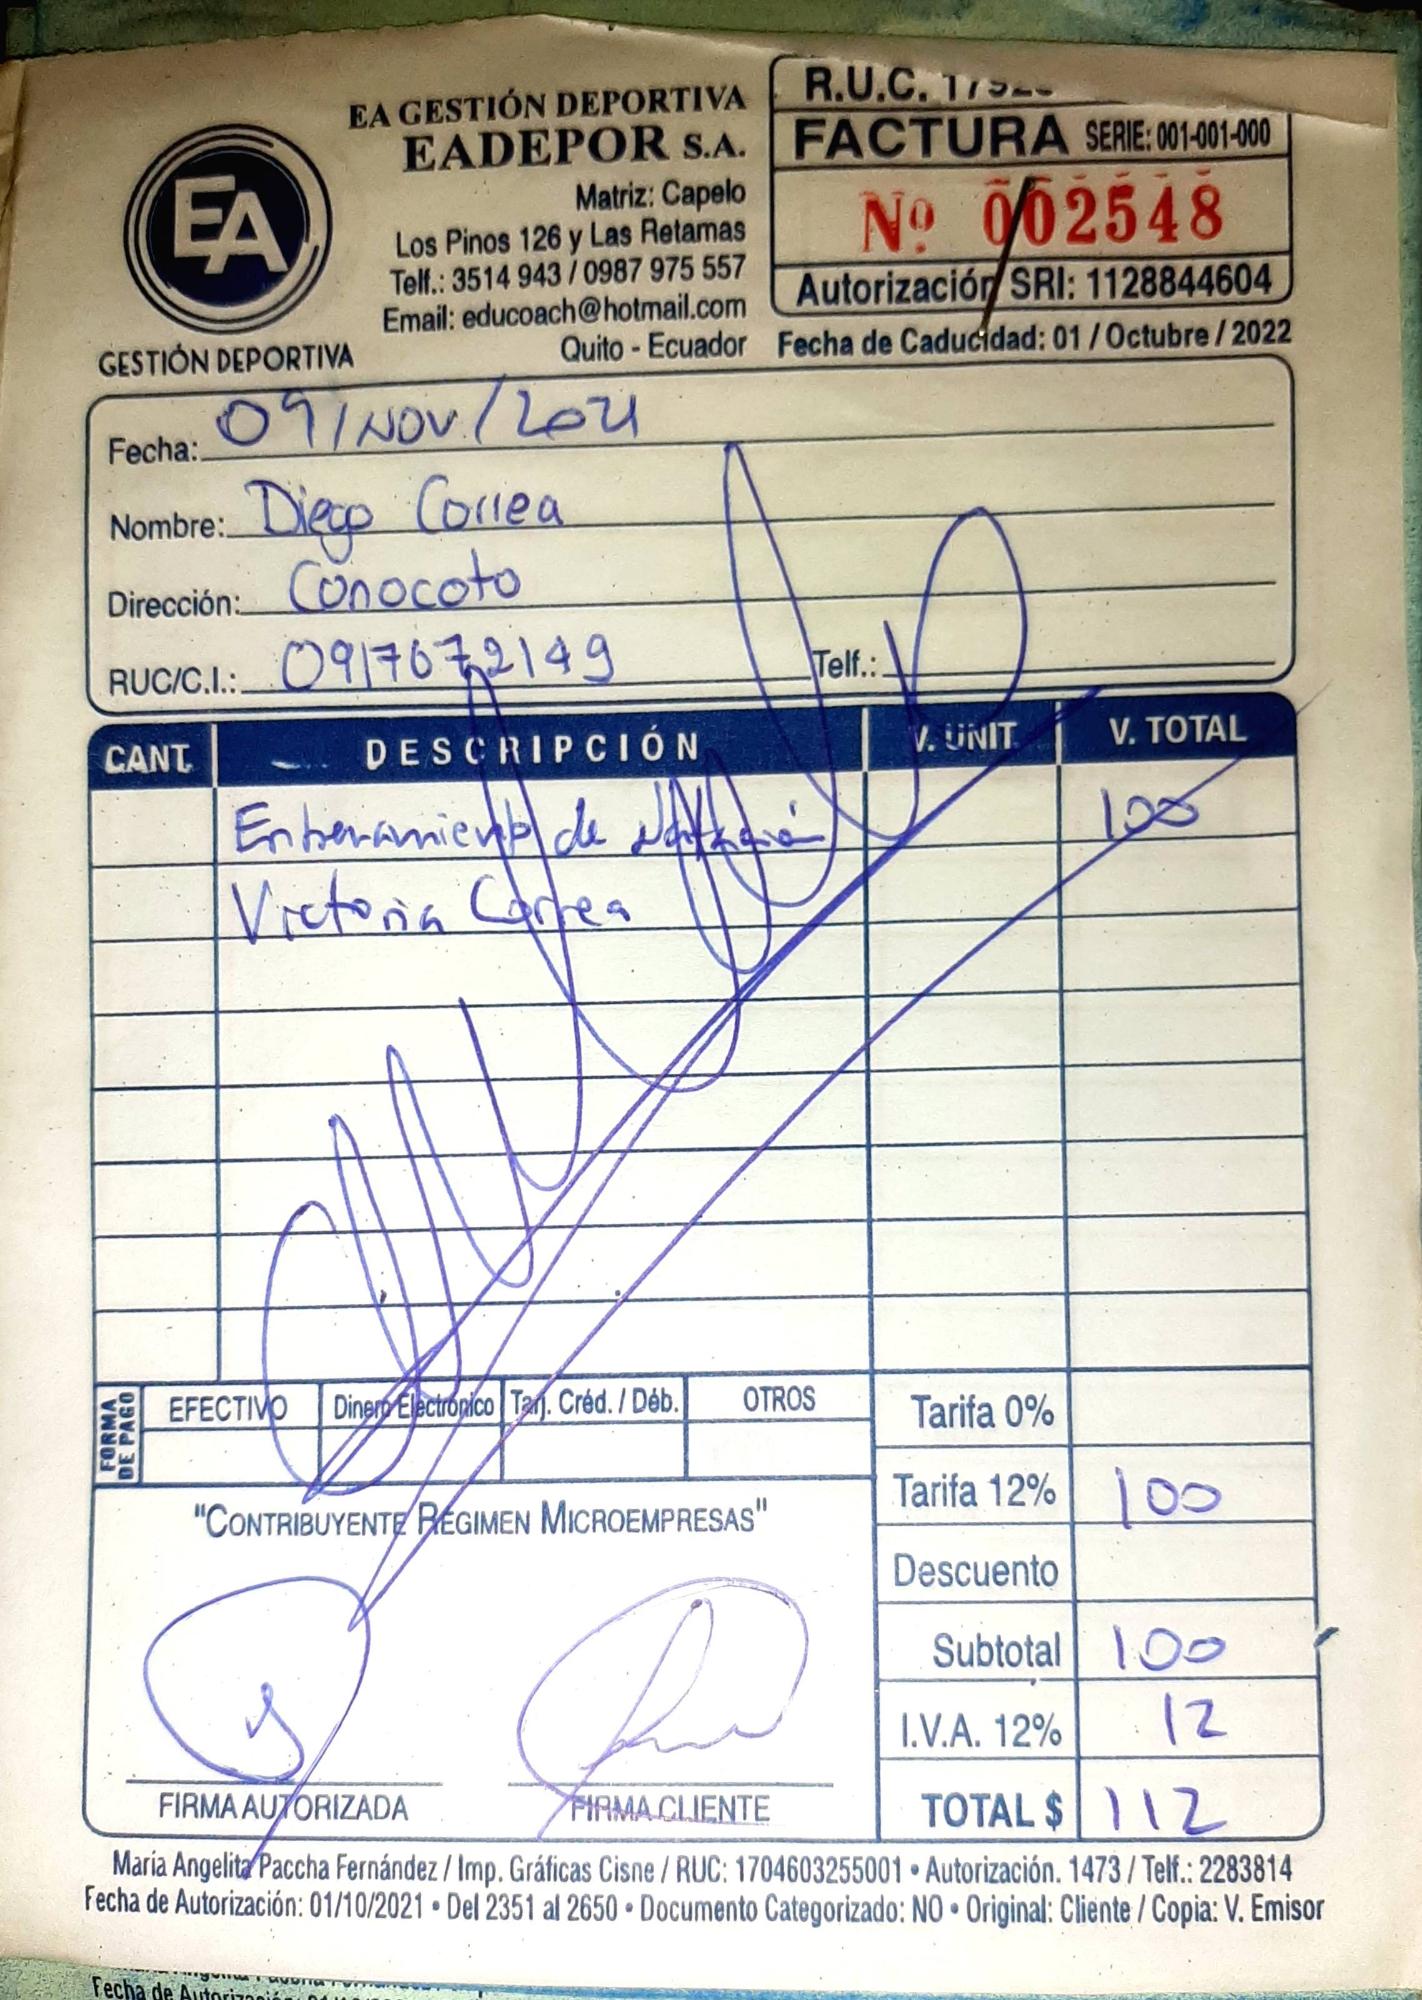 EA GESTIÓN DEPORTIVA
EADEPOR S.A.
Matriz: Capelo
Los Pinos 126 y Las Retamas
Telf.: 3514 943 / 0987 975 557
Email: educoach@hotmail.com
Quito - Ecuador
EA
GESTIÓN DEPORTIVA
R.U.C.
FACTURA SERIE: 001-001-000
Nº 002548
Autorización SRI: 1128844604
Fecha de Caducidad: 01 / Octubre / 2022
Fecha: 09/NOV/2021
Nombre: Diego Correa
Dirección: Conocoto
RUC/C.I.: 0917672149 Telf.:
CANT. DESCRIPCIÓN V. UNIT. V. TOTAL
Entrenamiento de Natación 100
Victoria Correa
FORMA DE PAGO EFECTIVO Dinero Electrónico Tarj. Créd. / Déb. OTROS
Tarifa 0%
Tarifa 12% 100
"CONTRIBUYENTE RÉGIMEN MICROEMPRESAS"
Descuento
Subtotal 100
I.V.A. 12% 12
TOTAL $ 112
FIRMA AUTORIZADA FIRMA CLIENTE
María Angelita Paccha Fernández / Imp. Gráficas Cisne / RUC: 1704603255001 • Autorización. 1473 / Telf.: 2283814
Fecha de Autorización: 01/10/2021 • Del 2351 al 2650 • Documento Categorizado: NO • Original: Cliente / Copia: V. Emisor
Fecha de